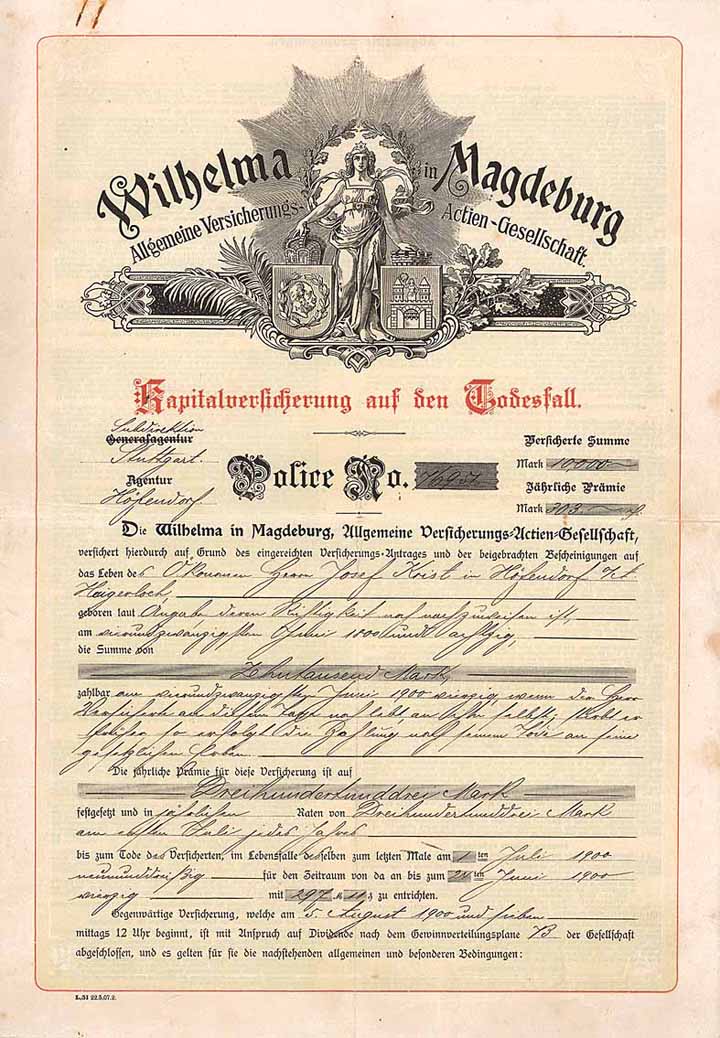 Wilhelma in Magdeburg
Allgemeine Versicherungs-Actien-Gesellschaft.
Kapitalversicherung auf den Todesfall.
Subdirektion
Generalagentur
Stuttgart.
Agentur
Höfendorf.
Police No.
Versicherte Summe
Mark 10,000
Jährliche Prämie
Mark 303
Die Wilhelma in Magdeburg, Allgemeine Versicherungs-Actien-Gesellschaft,
versichert hierdurch auf Grund des eingereichten Versicherungs-Antrages und der beigebrachten Bescheinigungen auf
das Leben des Ökonomen Herrn Josef in Höfendorf
Haigerloch,
geboren laut Angabe, deren Richtigkeit noch nachzuweisen ist,
am vierundzwanzigsten Juni 1800 und achtzig,
die Summe von
Zehntausend Mark
zahlbar am vierundzwanzigsten Juni 1900 vierzig, wenn der Herr
Versicherte an diesem Tage noch lebt, an ihn selbst; stirbt er
früher, so erfolgt die Zahlung nach seinem Tode an seine
gesetzlichen Erben.
Die jährliche Prämie für diese Versicherung ist auf
Dreihundertunddrei Mark
festgesetzt und in jährlichen Raten von Dreihundertunddrei Mark
am ersten Juli jedes Jahres
bis zum Tode des Versicherten, im Lebensfalle desselben zum letzten Male am 1ten Juli 1900
neununddreißig für den Zeitraum von da an bis zum 24ten Juni 1900
vierzig mit 297 M 11 ₰ zu entrichten.
Gegenwärtige Versicherung, welche am 5. August 1900 und sieben
mittags 12 Uhr beginnt, ist mit Anspruch auf Dividende nach dem Gewinnverteilungsplane B der Gesellschaft
abgeschlossen, und es gelten für sie die nachstehenden allgemeinen und besonderen Bedingungen:
L./31 22.5.07.2.